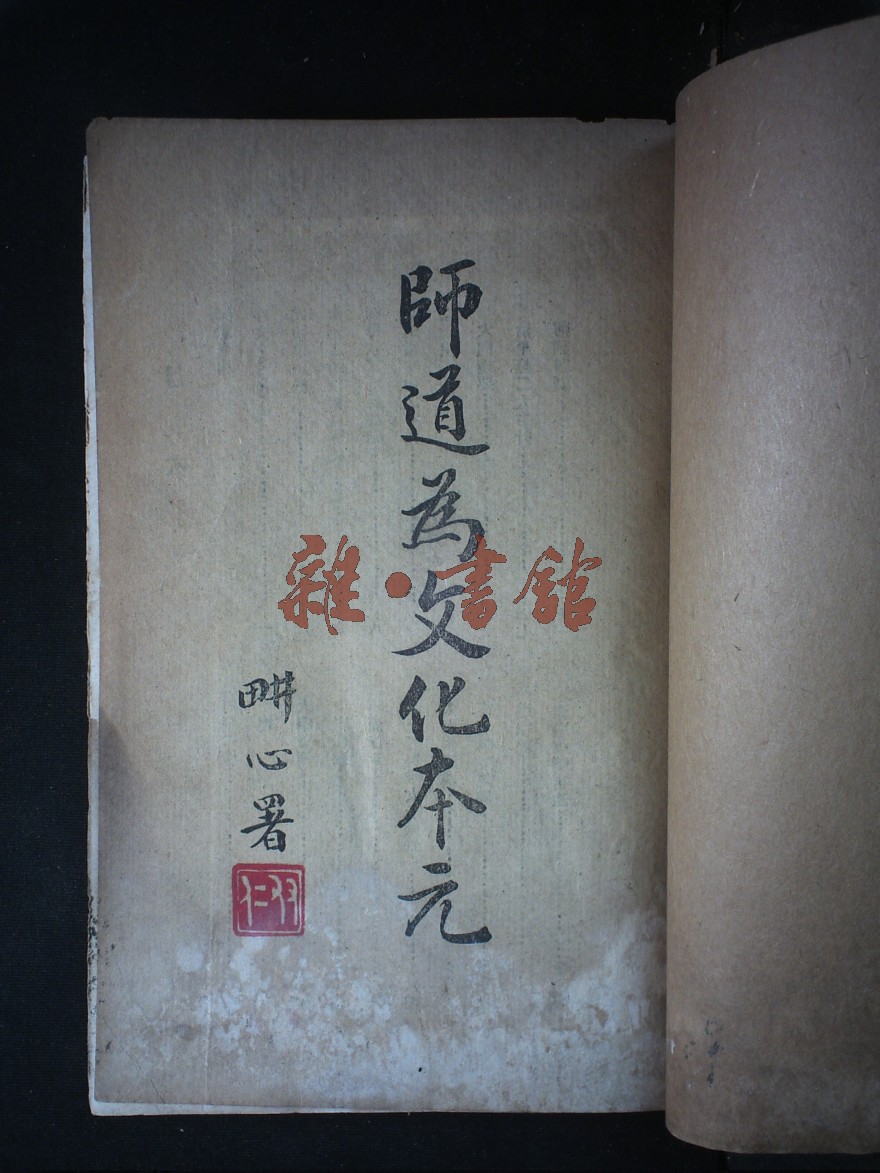 師道為文化本元
畊心署
雜·書館